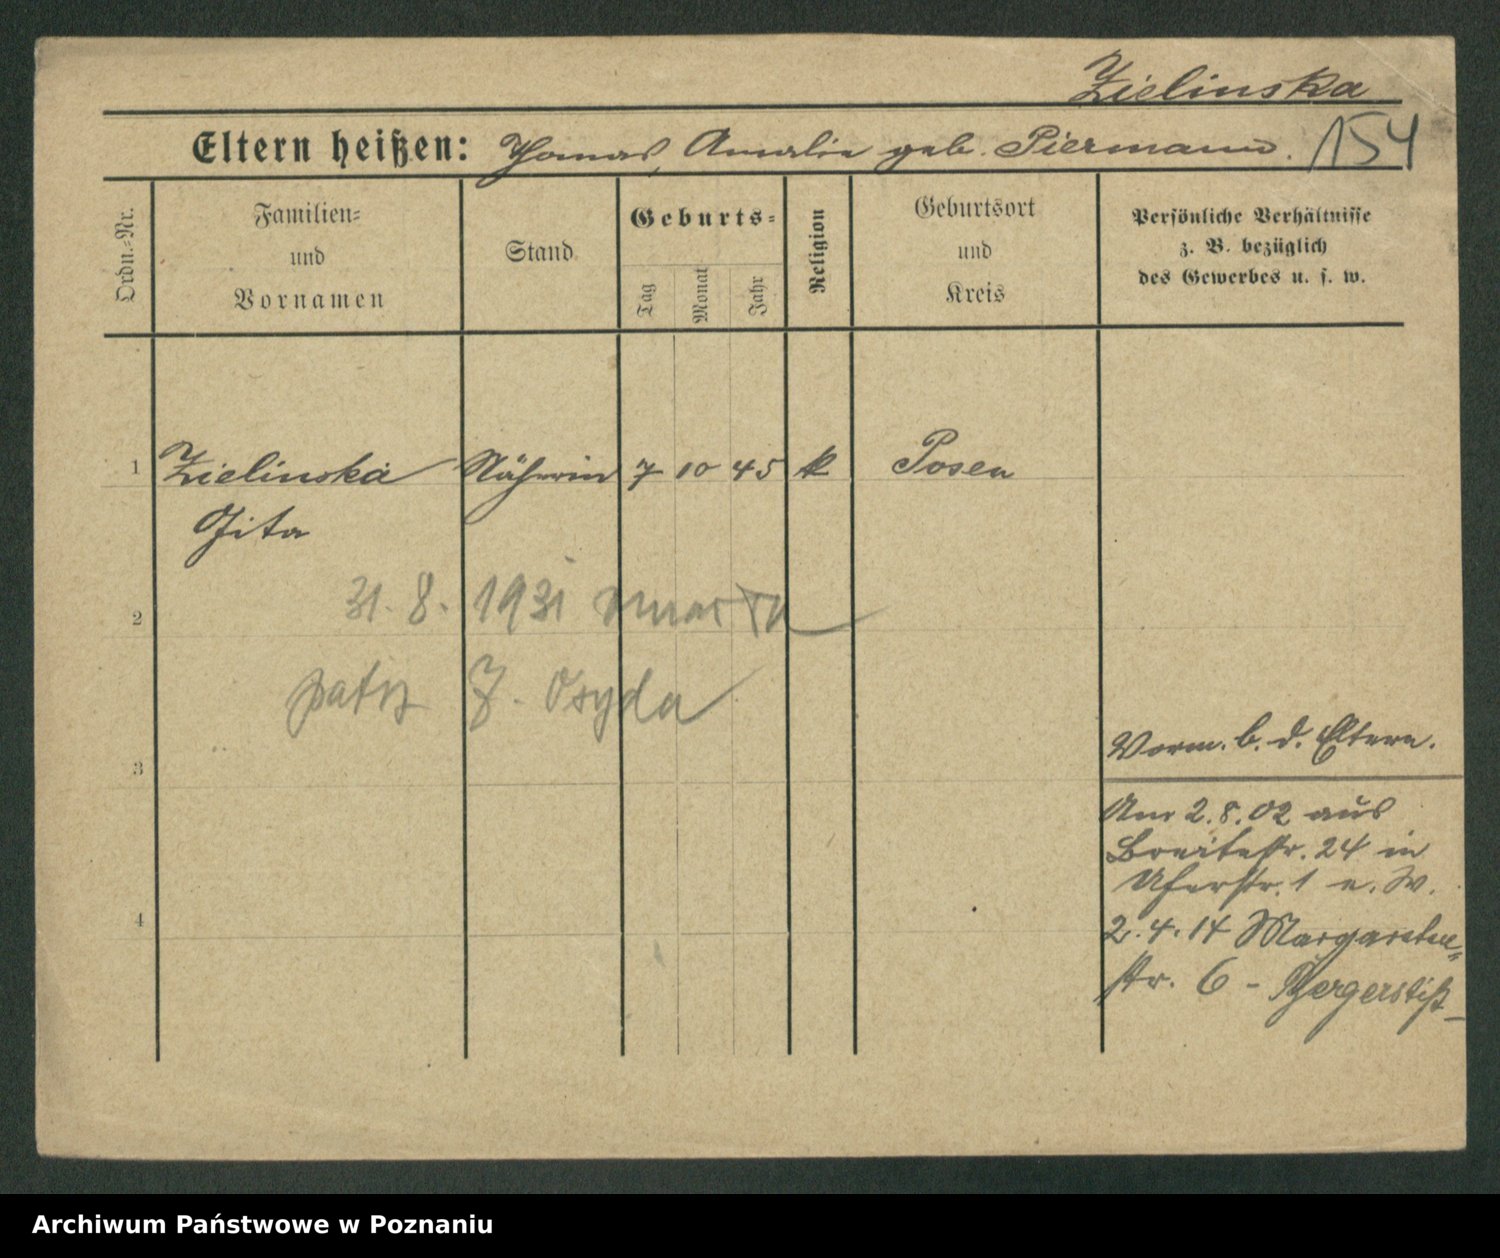 Zielinska
Eltern heißen: Thomas, Amalie geb. Piermann. 154
Ordn.-Nr.
Familien-
und
Vornamen
Stand
Geburts-
Tag
Monat
Jahr
Religion
Geburtsort
und
Kreis
Persönliche Verhältnisse
z. B. bezüglich
des Gewerbes u. s. w.
1 Zielinska Näherin 7 10 45 k Posen
Zita
31. 8. 1931 zmarła
2
patrz Z. Osyda
Vorm. b. d. Eltern.
3
Am 2.8.02 aus
Breitestr. 24 in
Uferstr. 1 e. W.
4
2.4.14 Margareten-
str. 6 -
Archiwum Państwowe w Poznaniu